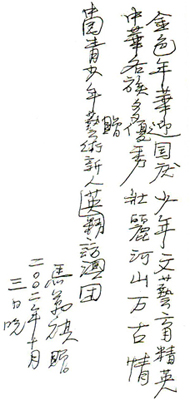 金色年華迎国庆 少年文藝育精英
中華各族多優秀 壯麗河山万古情
贈
中国青少年藝術新人英翹訪澳团
馬萬祺贈
二〇〇二年十月
三日晚